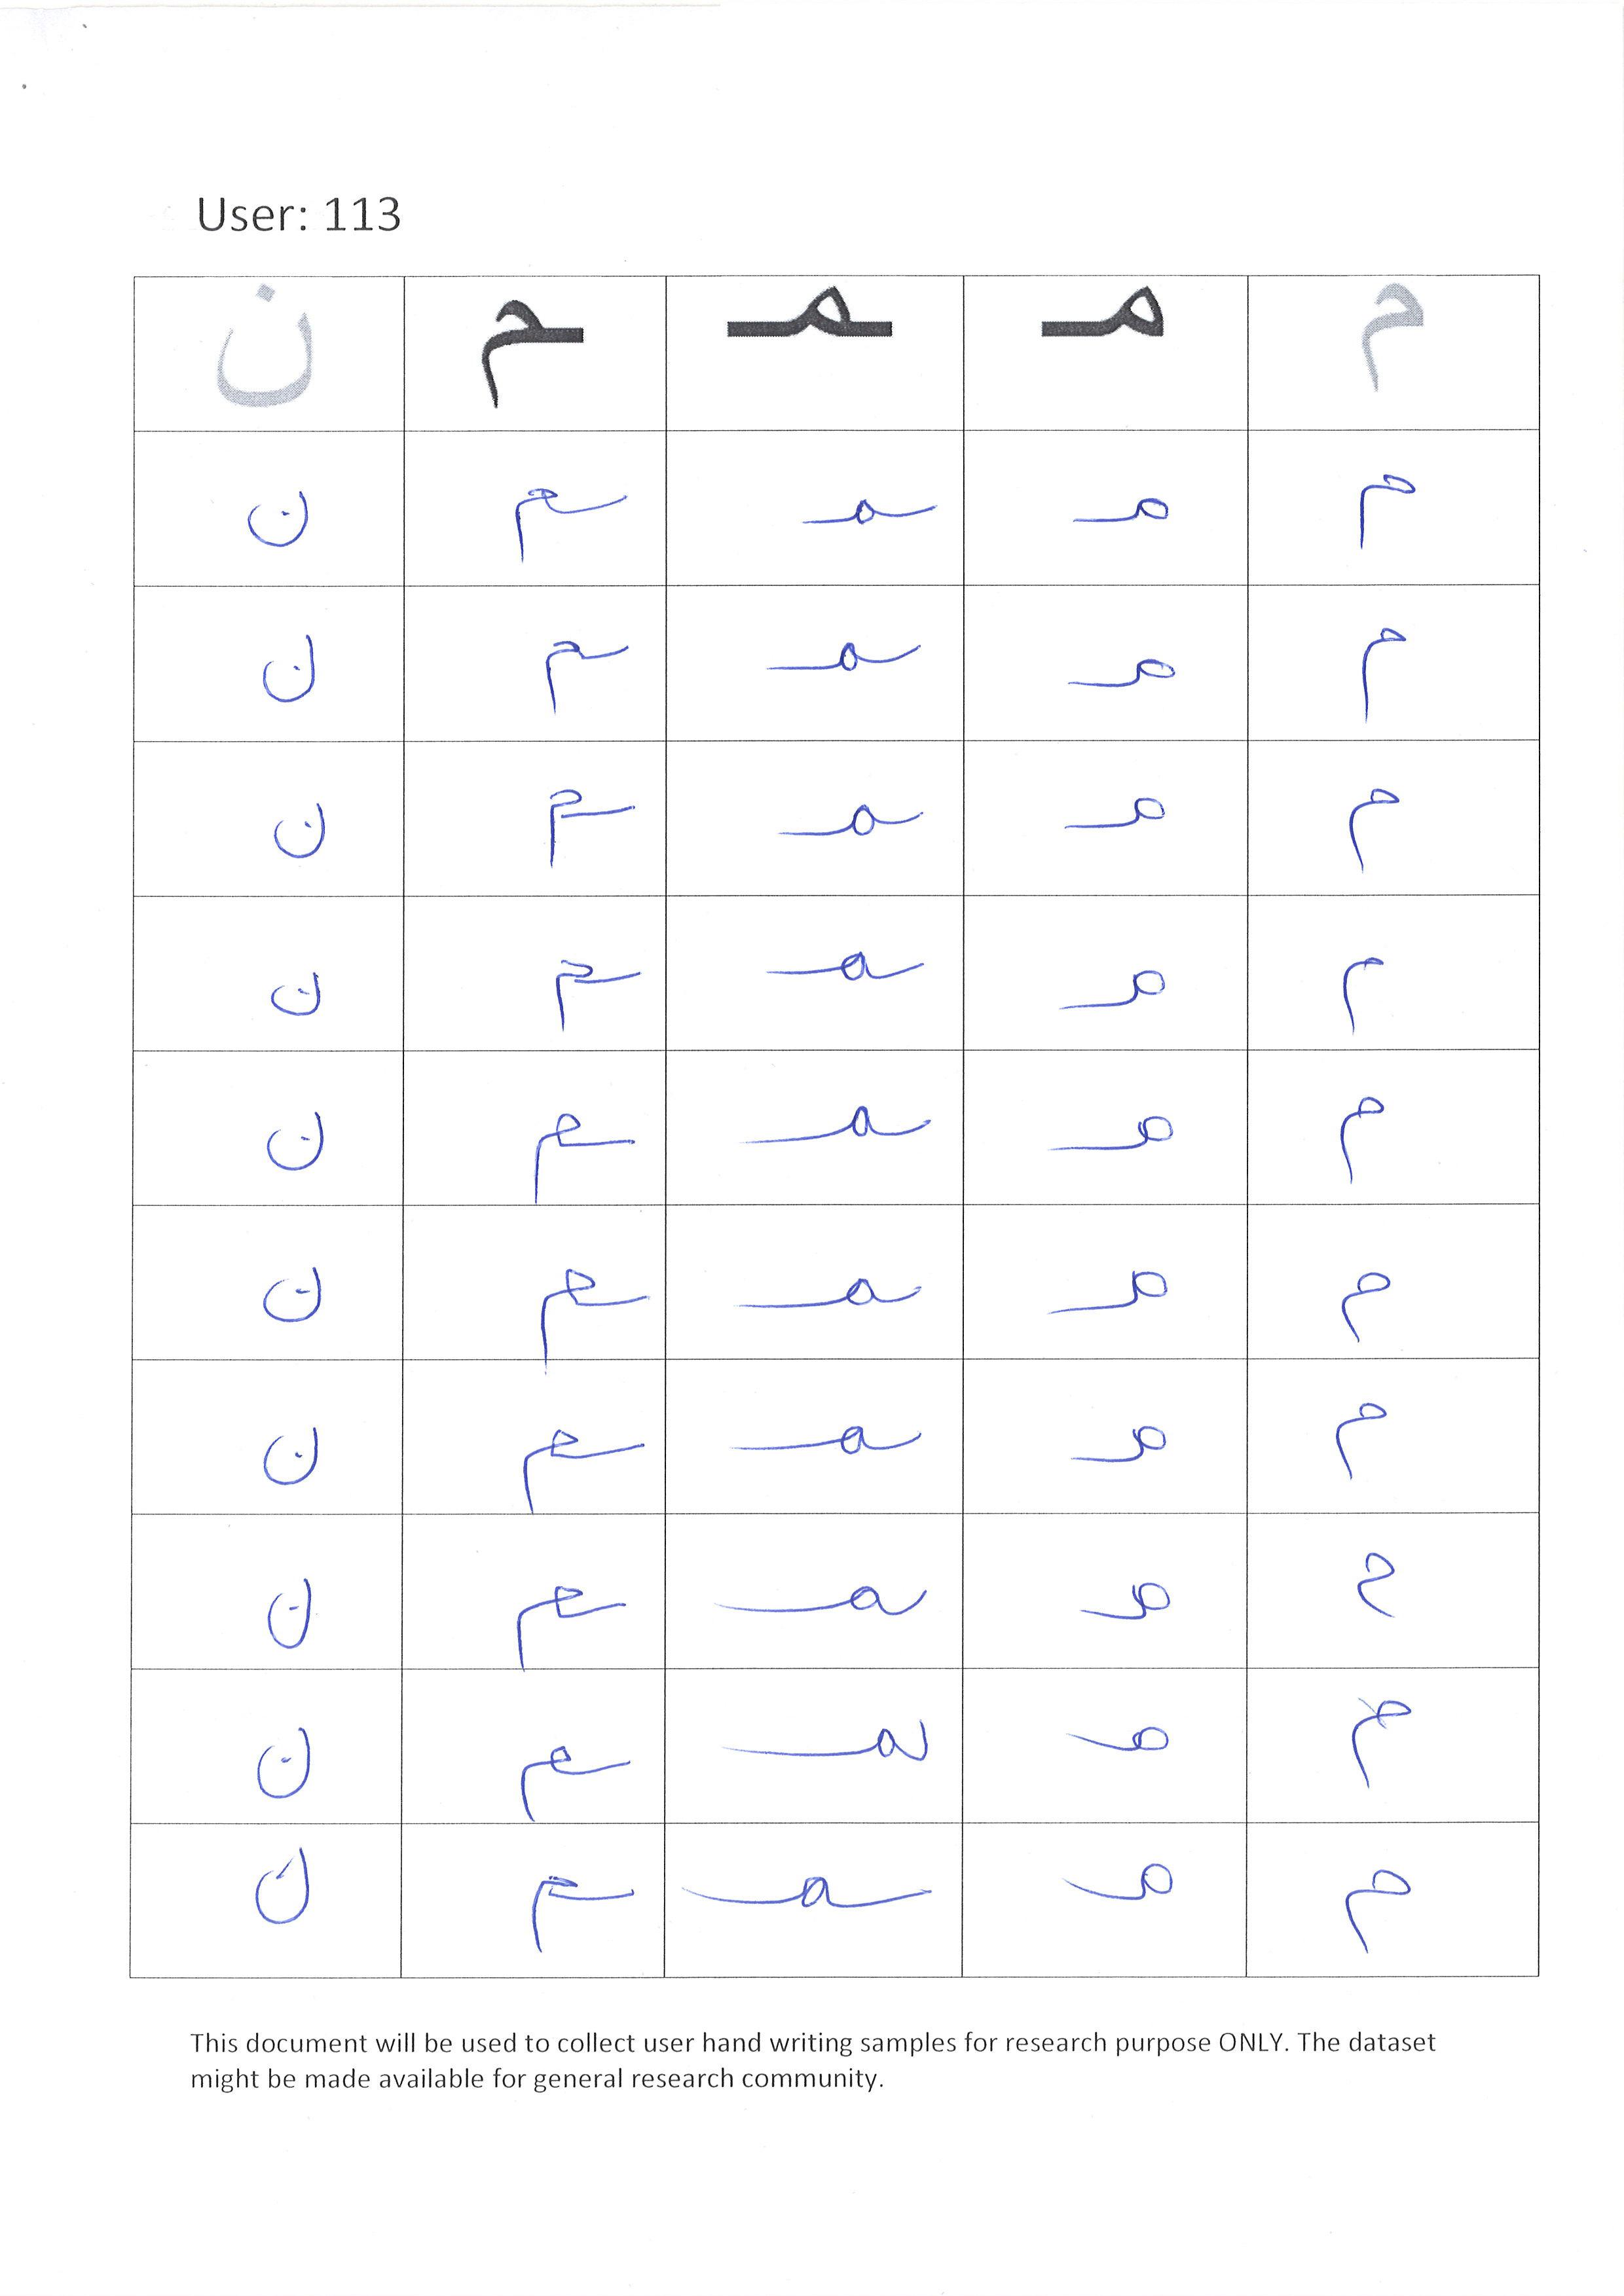 User: 113
م مـ ـمـ ـم ن
م مـ ـمـ ـم ن
م مـ ـمـ ـم ن
م مـ ـمـ ـم ن
م مـ ـمـ ـم ن
م مـ ـمـ ـم ن
م مـ ـمـ ـم ن
م مـ ـمـ ـم ن
م مـ ـمـ ـم ن
م مـ ـمـ ـم ن
م مـ ـمـ ـم ن
This document will be used to collect user hand writing samples for research purpose ONLY. The dataset
might be made available for general research community.